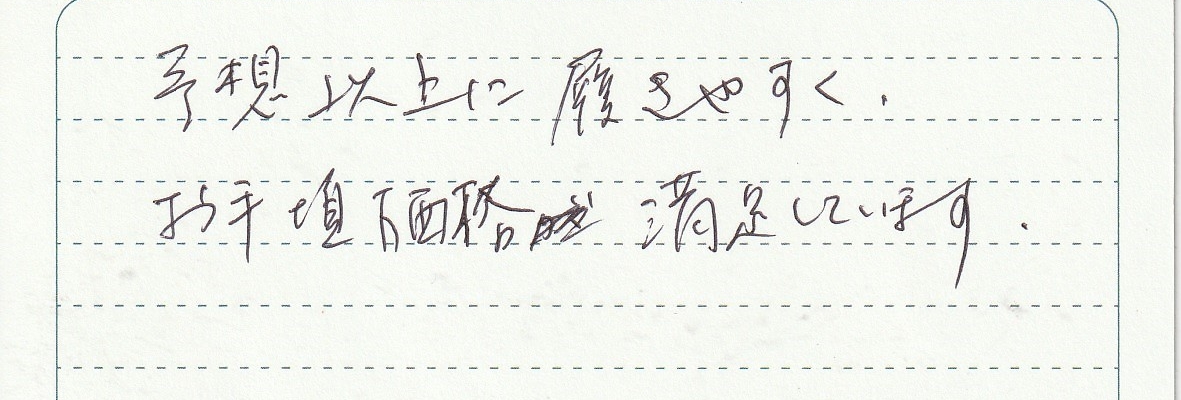 予想以上に履きやすく.
お手頃価格で満足しています.